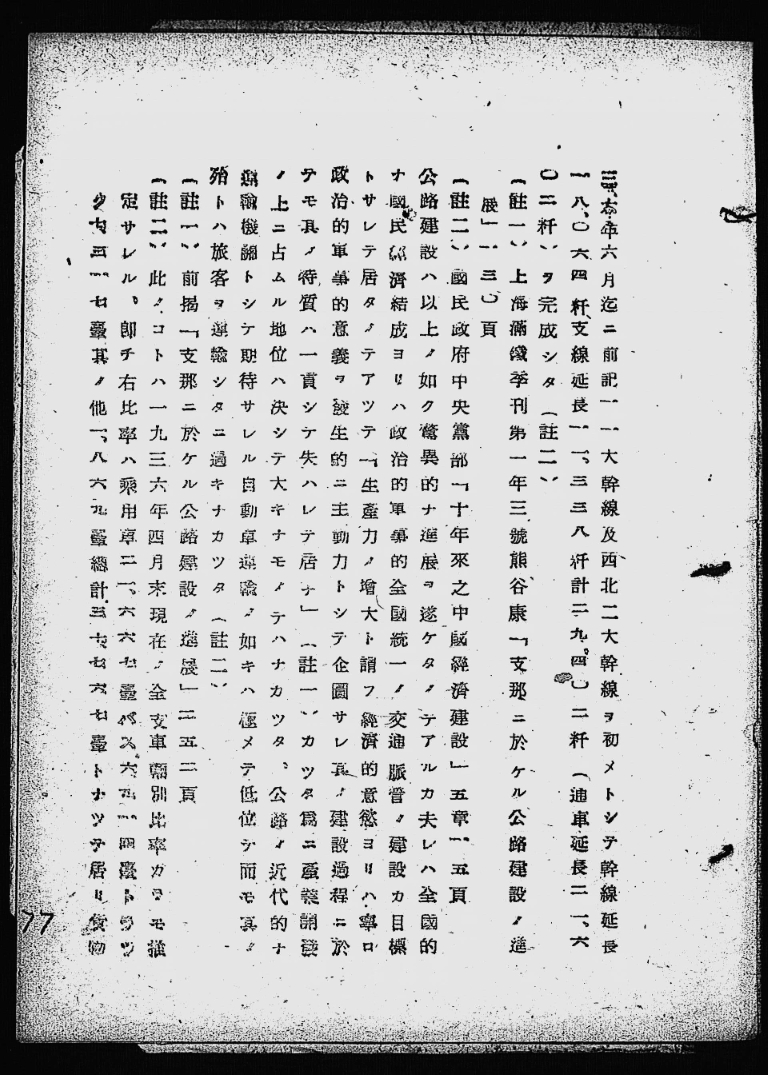 年六月迄ニ前記一一大幹線及西北二大幹線ヲ初メトシテ幹線延長
一八、〇六四粁支線延長一一、三三八粁計二九、四〇二粁(通車延長二一、六
〇二粁)ヲ完成シタ(註二)
(註一)上海滿鐵季刊第一年三號熊谷康「支那ニ於ケル公路建設ノ進
展」一三〇頁
(註二)國民政府中央黨部「十年來之中國經濟建設」五章一五頁
公路建設ハ以上ノ如ク驚異的ナ進展ヲ遂ケタノテアルカ夫レハ全國的
ナ國民經濟結成ヨリハ政治的軍事的全國統一ノ交通脈管ノ建設カ目標
トサレテ居タノテアツテ「生產力ノ增大ト謂フ經濟的意慾ヨリハ寧ロ
政治的軍事的意義ヲ發生的ニ主動力トシテ企圖サレ其ノ建設過程ニ於
テモ其ノ特質ハ一貫シテ失ハレテ居ナ」(註一)カツタ爲ニ產業開發
ノ上ニ占ムル地位ハ決シテ大キナモノテハナカツタ、公路ノ近代的ナ
運輸機關トシテ期待サレル自動車運輸ノ如キハ極メテ低位テ而モ其ノ
殆トハ旅客ヲ運輸シタニ過キナカツタ(註二)
(註一)前揭「支那ニ於ケル公路建設ノ進展」二五二頁
(註二)此ノコトハ一九三六年四月末現在ノ全支車輛別比率カラモ推
定サレル。卽チ右比率ハ乘用車二一、六六七臺バス六 一四臺トラツ
ク七三一七臺其ノ他一、八六九臺總計三七七六七臺トナツテ居リ貨物
77